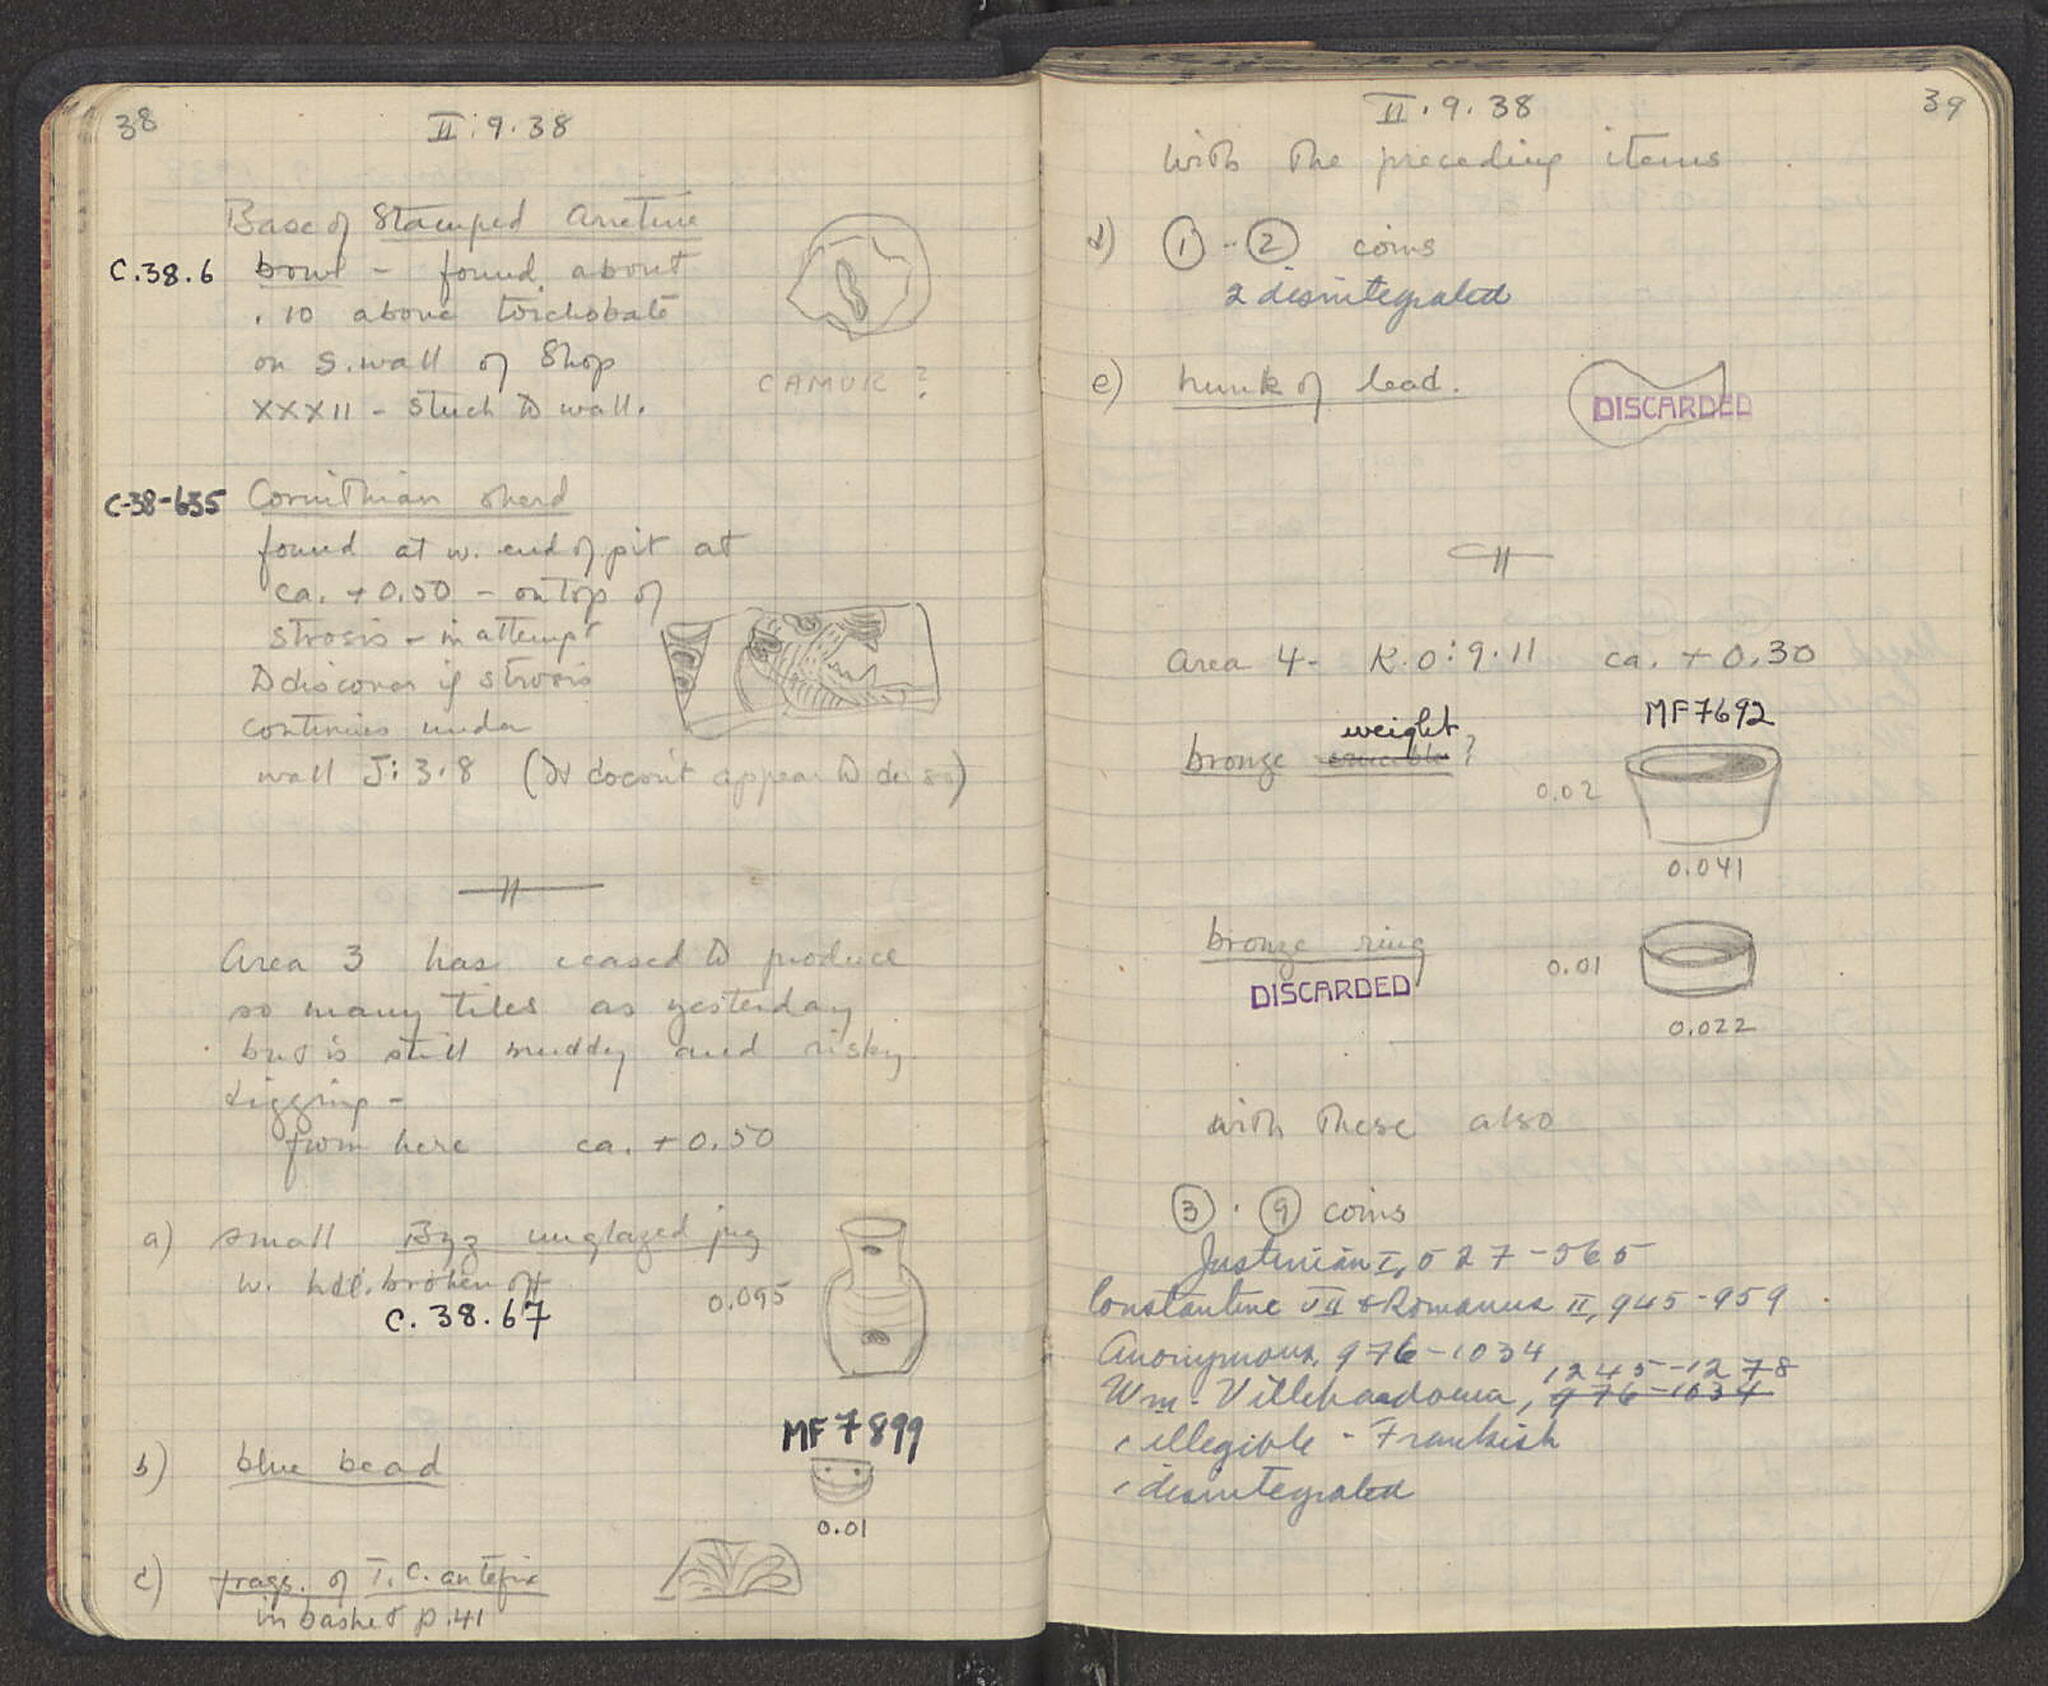 38
II:9.38
Base of Stamped Arretine
C.38.6 bowl - found about
.10 above toichobate
on S. wall of Shop
XXXII - stuck to wall.
CAMUR ?
C-38-635 Corinthian sherd
found at w. end of pit at
ca. +0.50 - on top of
strosis - in attempt
to discover if strosis
continues under
wall J:3.8 (It doesn't appear to do so)
Area 3 has ceased to produce
so many tiles as yesterday
but is still muddy and risky
digging -
from here ca. +0.50
a) small Byz unglazed jug
w. hdl. broken off
0.095
C.38.67
MF 7899
b) blue bead
0.01
c) frags. of T.C. antefix
in basket p.41
39
II.9.38
with the preceding items
d) 1 - 2 coins
2 disintegrated
e) hunk of lead.
DISCARDED
Area 4- K.O:9.11 ca. +0.30
MF7692
weight
bronze crucible ?
0.02
0.041
bronze ring
0.01
DISCARDED
0.022
with these also
3 . 9 coins
Justinian I, 527-565
Constantine VII & Romanus II, 945-959
Anonymous, 976-1034
1245-1278
Wm. Villehardouin, 976-1034
1 illegible - Frankish
1 disintegrated